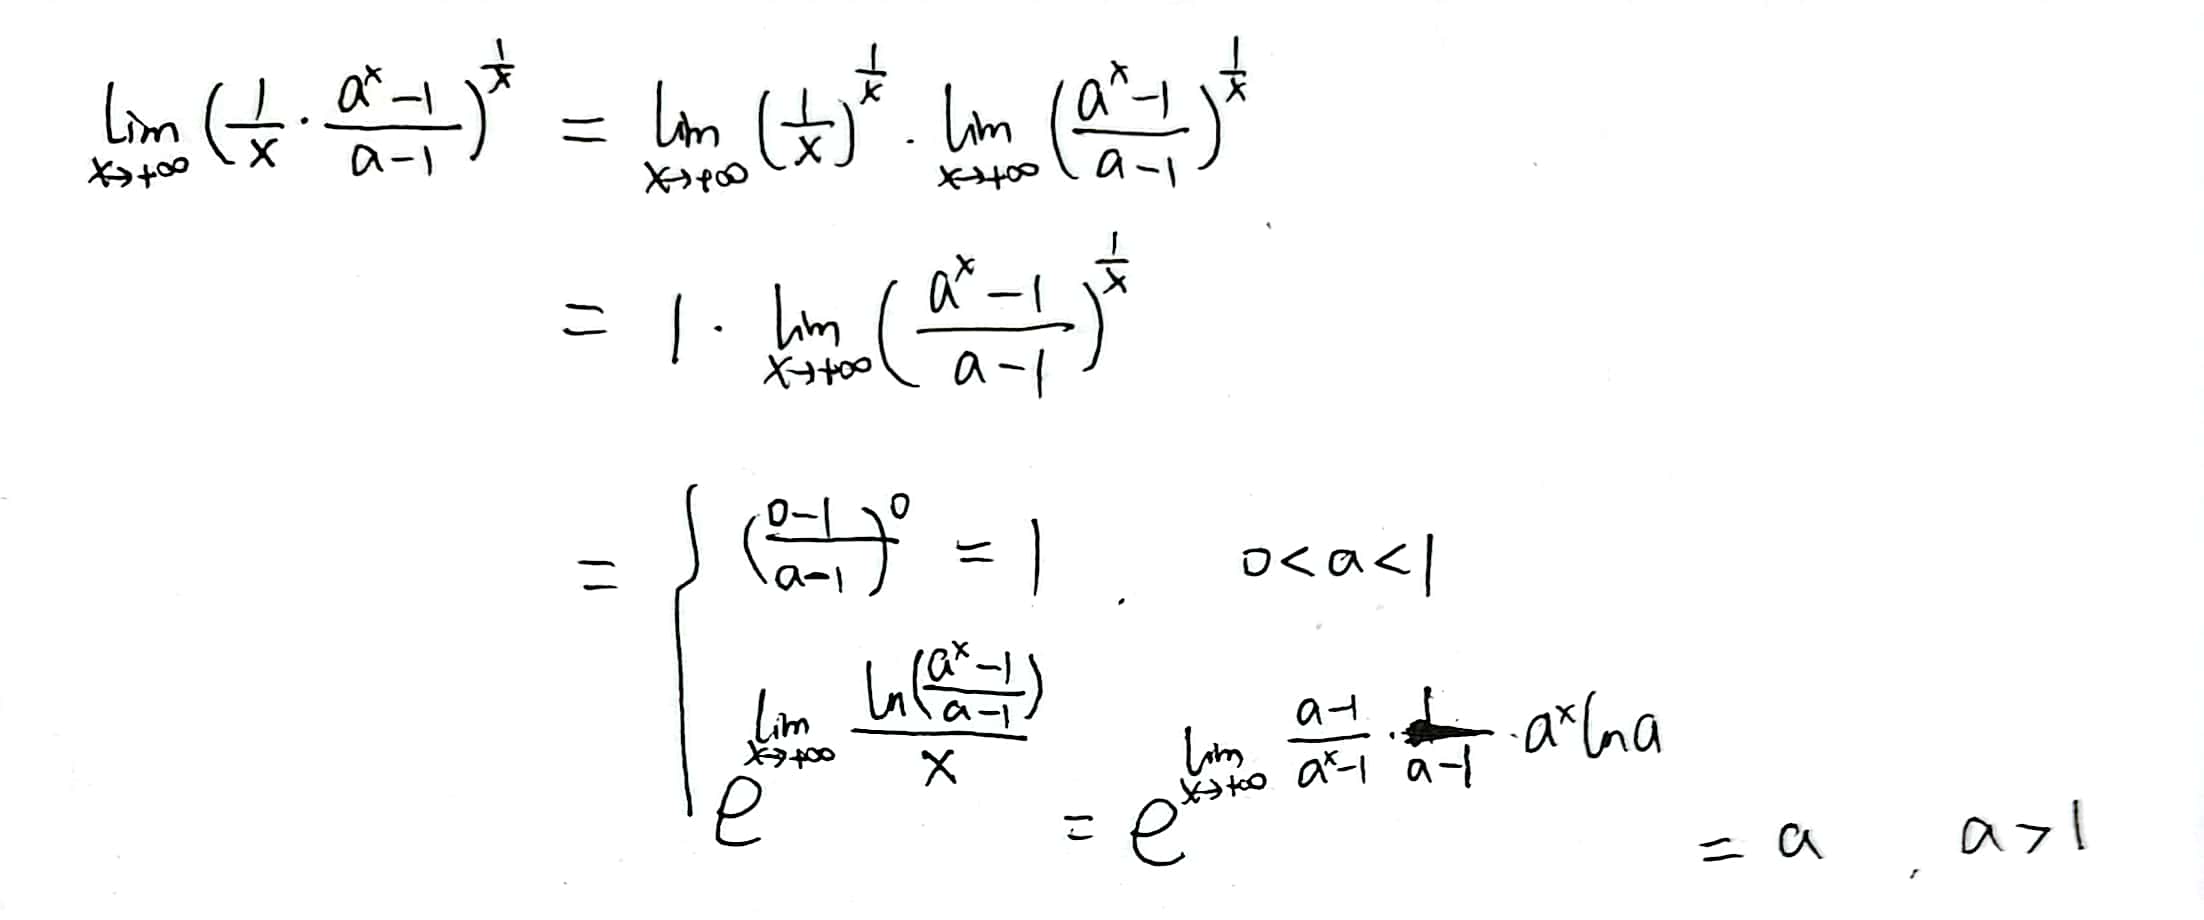 lim x→+∞ (1/x · (a^x−1)/(a−1))^(1/x) = lim x→+∞ (1/x)^(1/x) · lim x→+∞ ((a^x−1)/(a−1))^(1/x)
= 1 · lim x→+∞ ((a^x−1)/(a−1))^(1/x)
= { ((0−1)/(a−1))^0 = 1 , 0<a<1
e^(lim x→+∞ ln((a^x−1)/(a−1))/x) = e^(lim x→+∞ (a−1)/(a^x−1) · 1/(a−1) · a^x ln a) = a , a>1